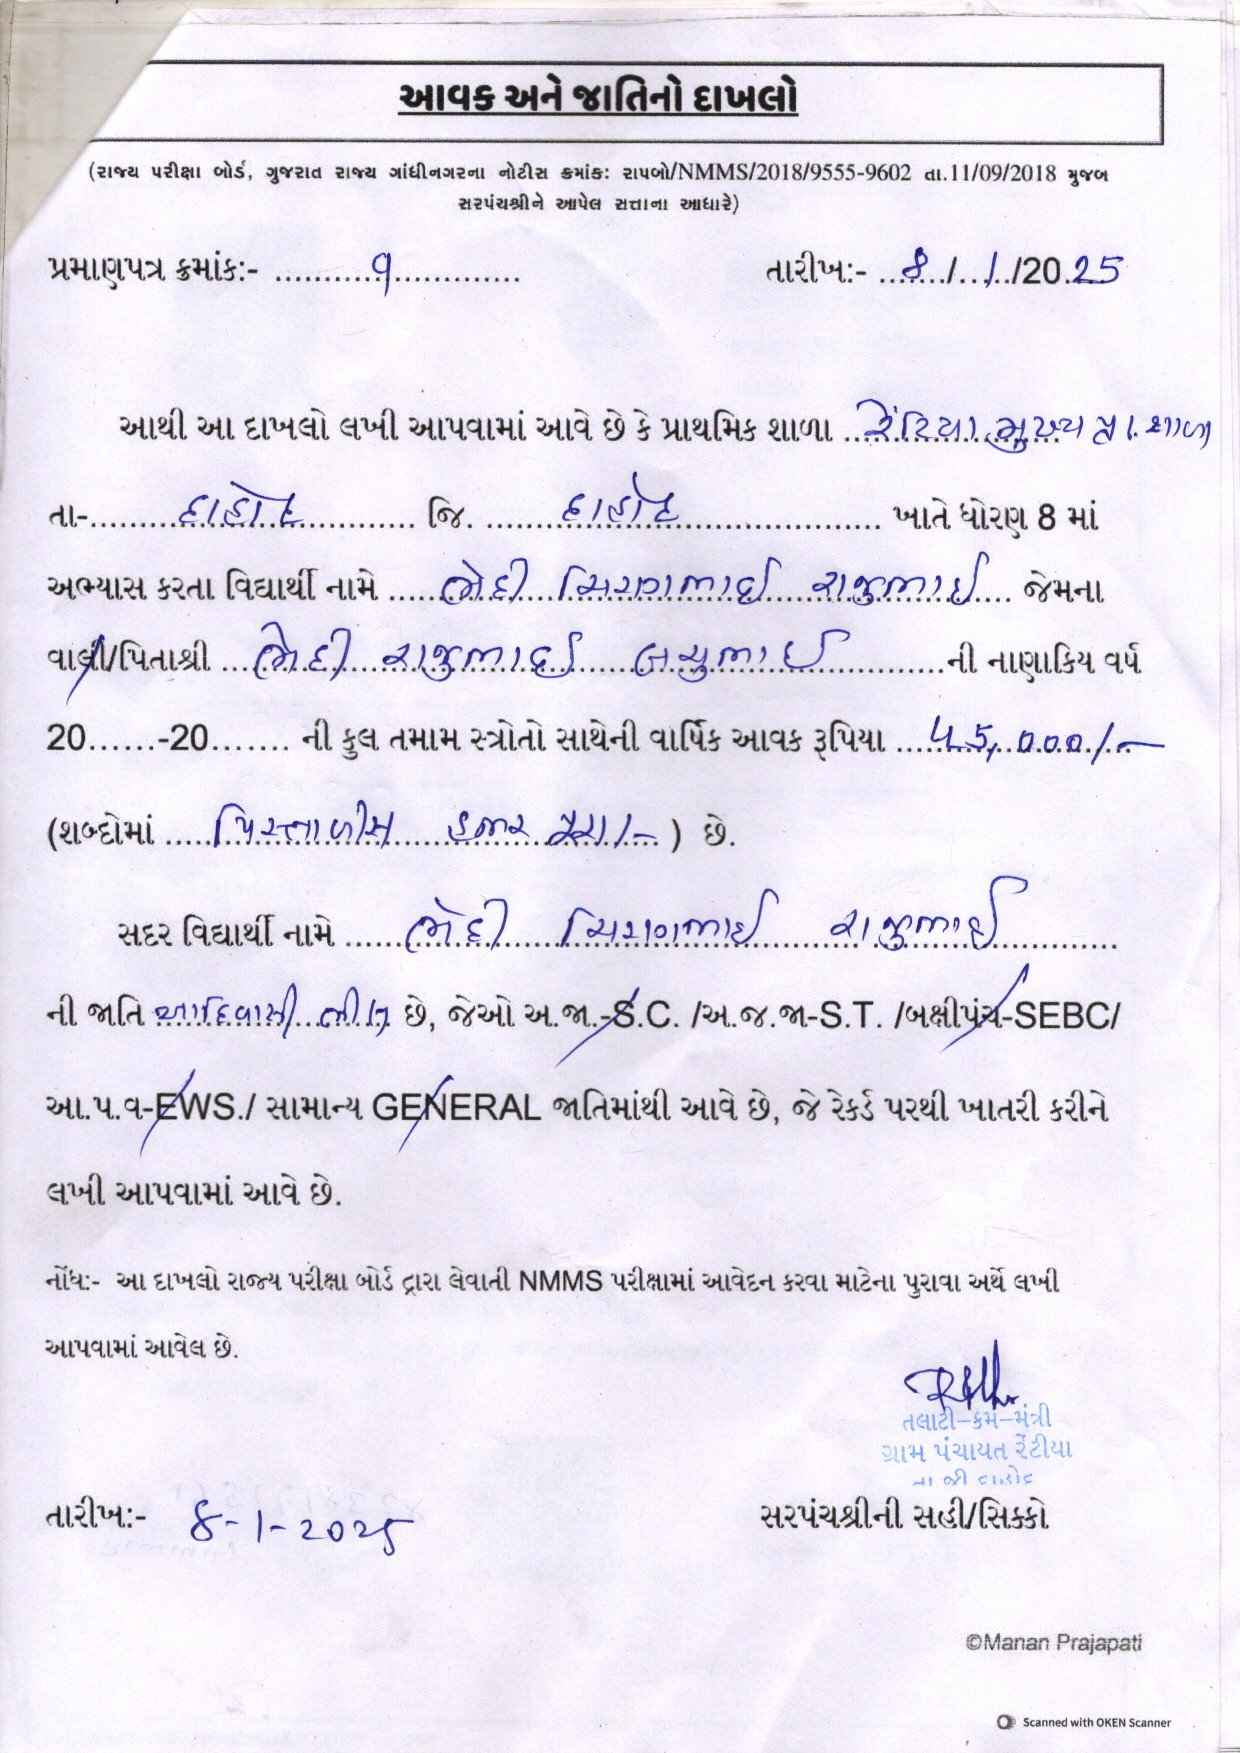 આવક અને જાતિનો દાખલો
(રાજ્ય પરીક્ષા બોર્ડ, ગુજરાત રાજ્ય ગાંધીનગરના નોટીસ ક્રમાંક: રાપબો/NMMS/2018/9555-9602 તા.11/09/2018 મુજબ
સરપંચશ્રીને આપેલ સત્તાના આધારે)
પ્રમાણપત્ર ક્રમાંક:- ...........૧............. તારીખ:- ..8.../...1./20.25
આથી આ દાખલો લખી આપવામાં આવે છે કે પ્રાથમિક શાળા રેંટિયા મુખ્ય પ્રા. શાળા
તા-.........દાહોદ............ જિ. .........દાહોદ...................... ખાતે ધોરણ 8 માં
અભ્યાસ કરતા વિદ્યાર્થી નામે ......ભેદી ... રાજુભાઈ.... જેમના
વાલી/પિતાશ્રી ...ભેદી રાજુભાઈ બચુભાઈ............ની નાણાકિય વર્ષ
20......-20....... ની કુલ તમામ સ્ત્રોતો સાથેની વાર્ષિક આવક રૂપિયા ...45,000/-
(શબ્દોમાં .....પિસ્તાળીસ હજાર પુરા/- ) છે.
સદર વિદ્યાર્થી નામે ......ભેદી ... રાજુભાઈ............
ની જાતિ આદિવાસી ભીલ છે, જેઓ અ.જા.-S.C. /અ.જ.જા-S.T. /બક્ષીપંચ-SEBC/
આ.પ.વ-EWS./ સામાન્ય GENERAL જાતિમાંથી આવે છે, જે રેકર્ડ પરથી ખાતરી કરીને
લખી આપવામાં આવે છે.
નોંધ:- આ દાખલો રાજ્ય પરીક્ષા બોર્ડ દ્વારા લેવાતી NMMS પરીક્ષામાં આવેદન કરવા માટેના પુરાવા અર્થે લખી
આપવામાં આવેલ છે.
તલાટી-કમ-મંત્રી
ગ્રામ પંચાયત રેંટીયા
તા જી દાહોદ
તારીખ:- 8-1-2025 સરપંચશ્રીની સહી/સિક્કો
©Manan Prajapati
Scanned with OKEN Scanner